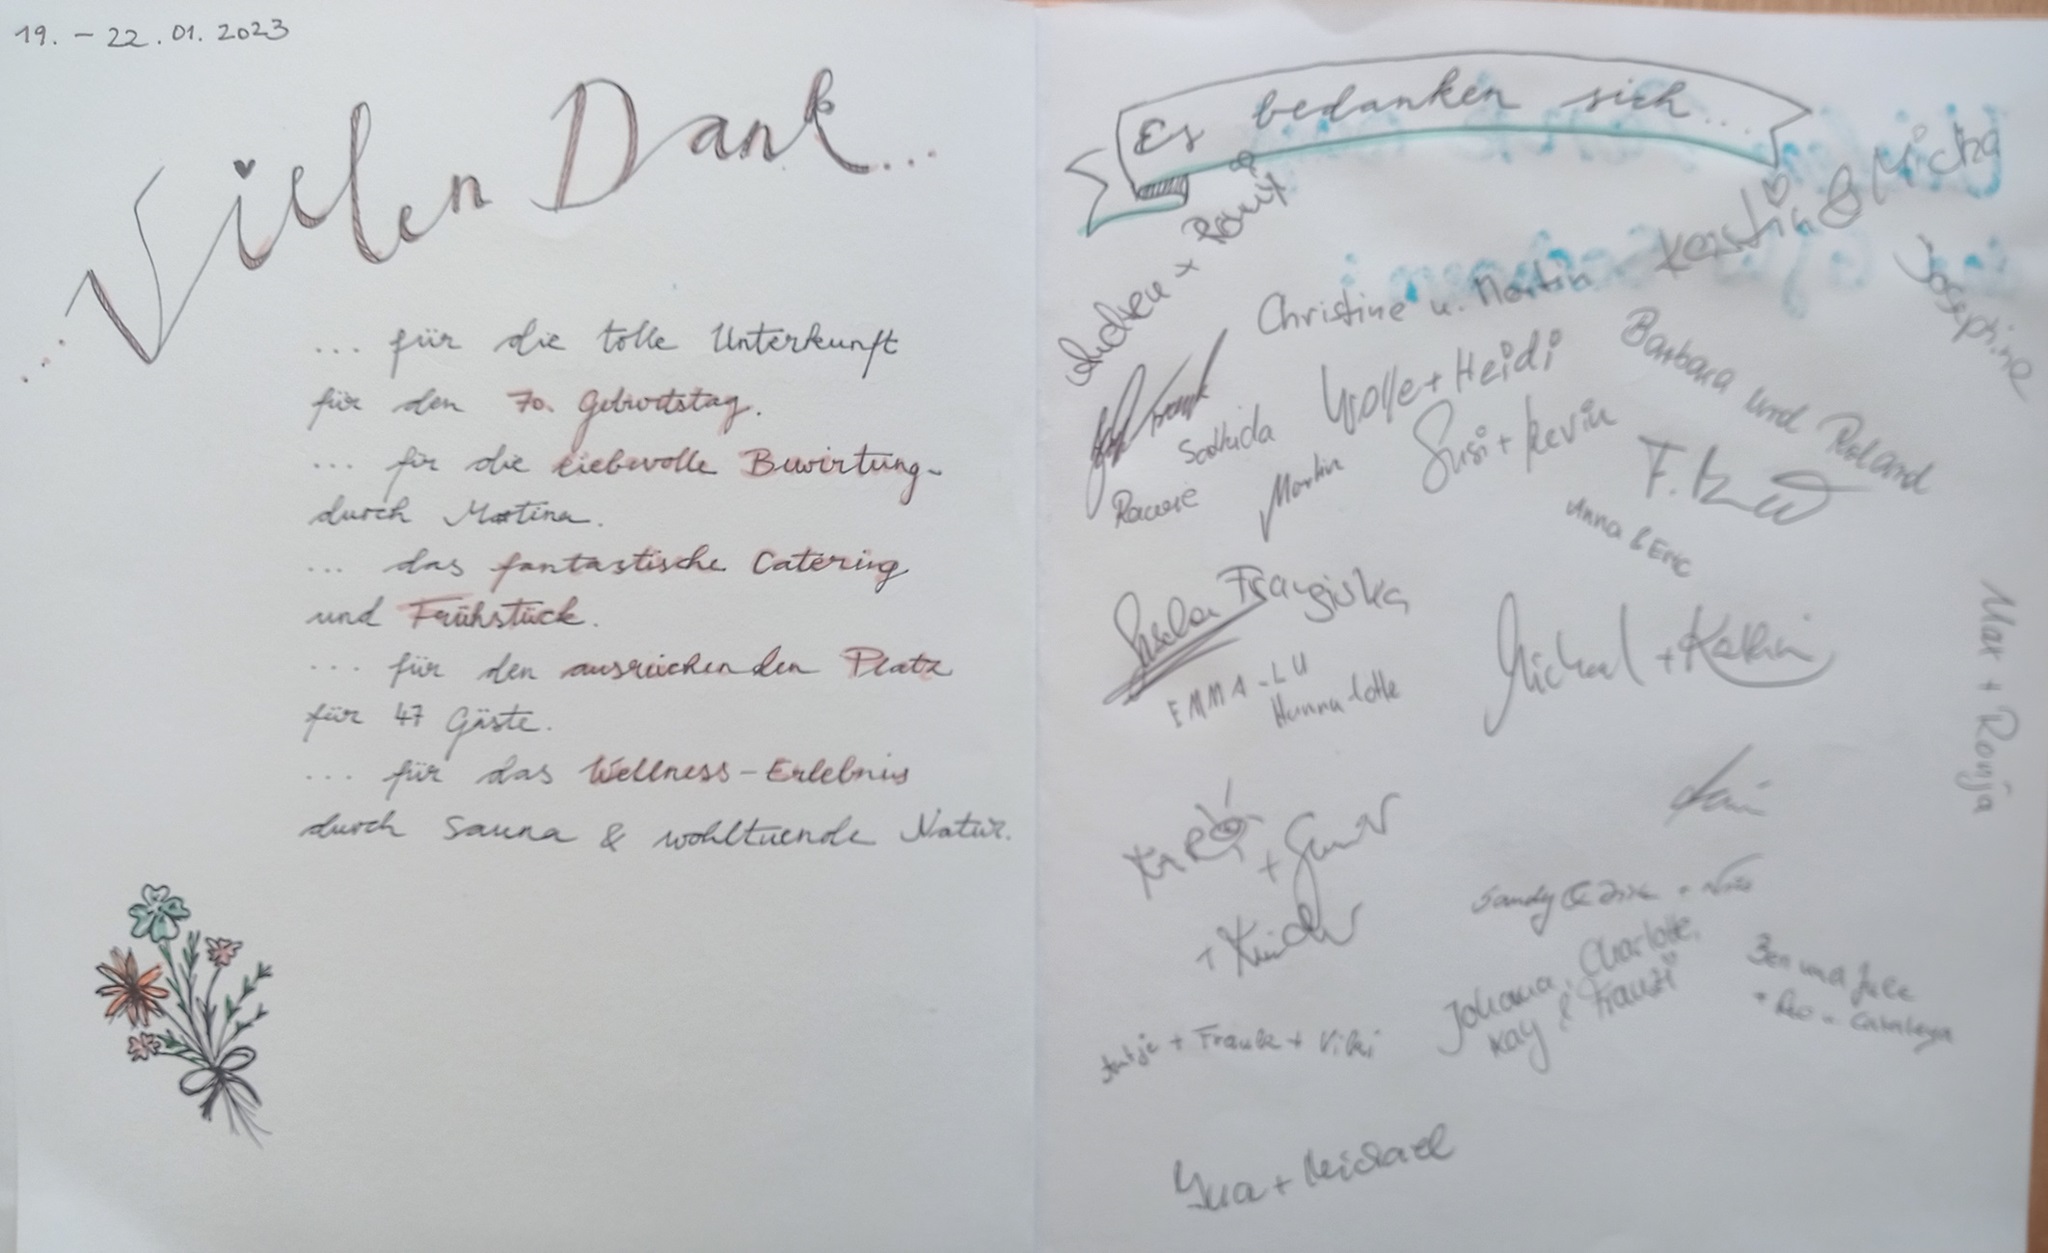 19. - 22.01.2023
... Vielen Dank ...
... für die tolle Unterkunft
für den 70. Geburtstag.
... für die liebevolle Bewirtung
durch Martina.
... das fantastische Catering
und Frühstück.
... für den ausreichenden Platz
für 47 Gäste.
... für das Wellness-Erlebnis
durch Sauna & wohltuende Natur.
Es bedanken sich...
Kerstin & Micha
Josephine
Christine u. Martin
Barbara und Roland
Wolle + Heidi
Susi + Kevin
Martin
Anna & Eric
Franziska
EMMA-LU
Hanna-Lotte
Michael + Kathrin
Max + Ronja
Johanna, Charlotte,
Kay & Franzi
Antje + Frauke + Viki
Ben und Jule
+ Michael